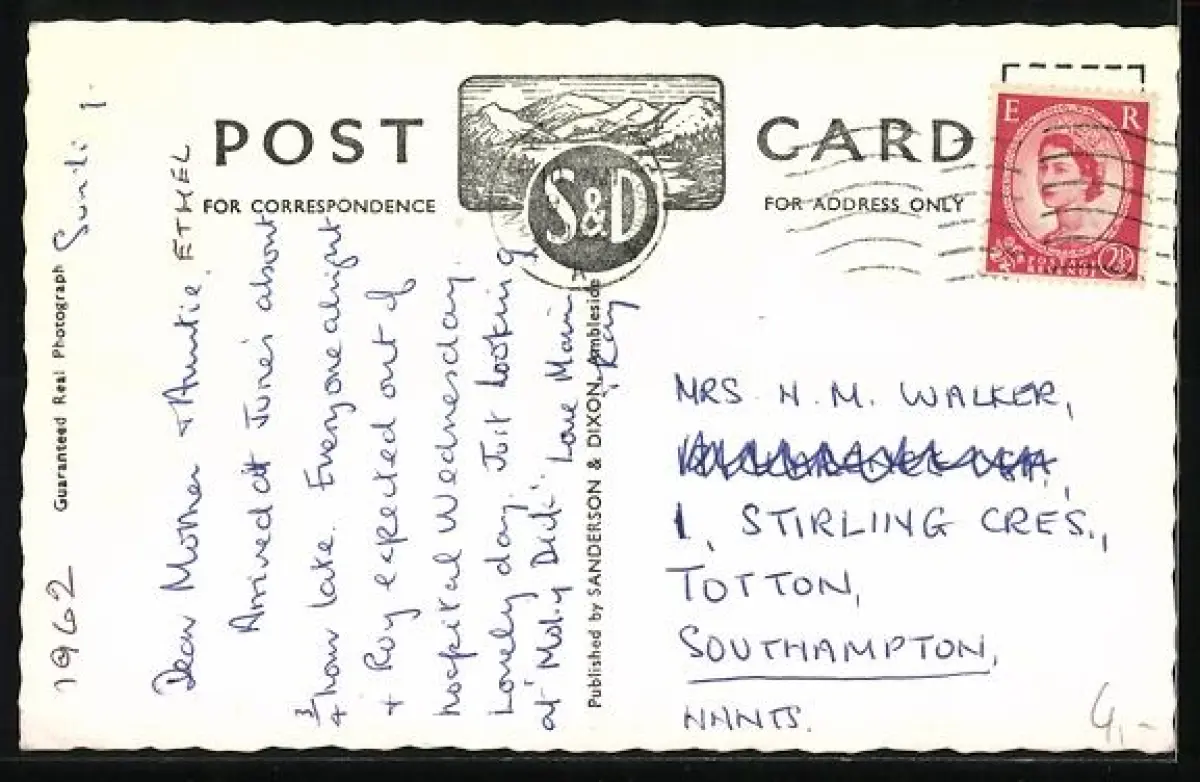 POST CARD
FOR CORRESPONDENCE
FOR ADDRESS ONLY
S&D
E R
POSTAGE
REVENUE
2½
Guaranteed Real Photograph
Published by SANDERSON & DIXON, Ambleside
1962
ETHEL
Dear Mother & Auntie.
Arrived at June's about
¾ hour late. Everyone alright
+ Roy expected out of
hospital Wednesday.
Lovely day. Just looking
at
Love
Ray
MRS. H. M. WALKER,
1, STIRLING CRES.,
TOTTON,
SOUTHAMPTON,
HANTS.
4,-